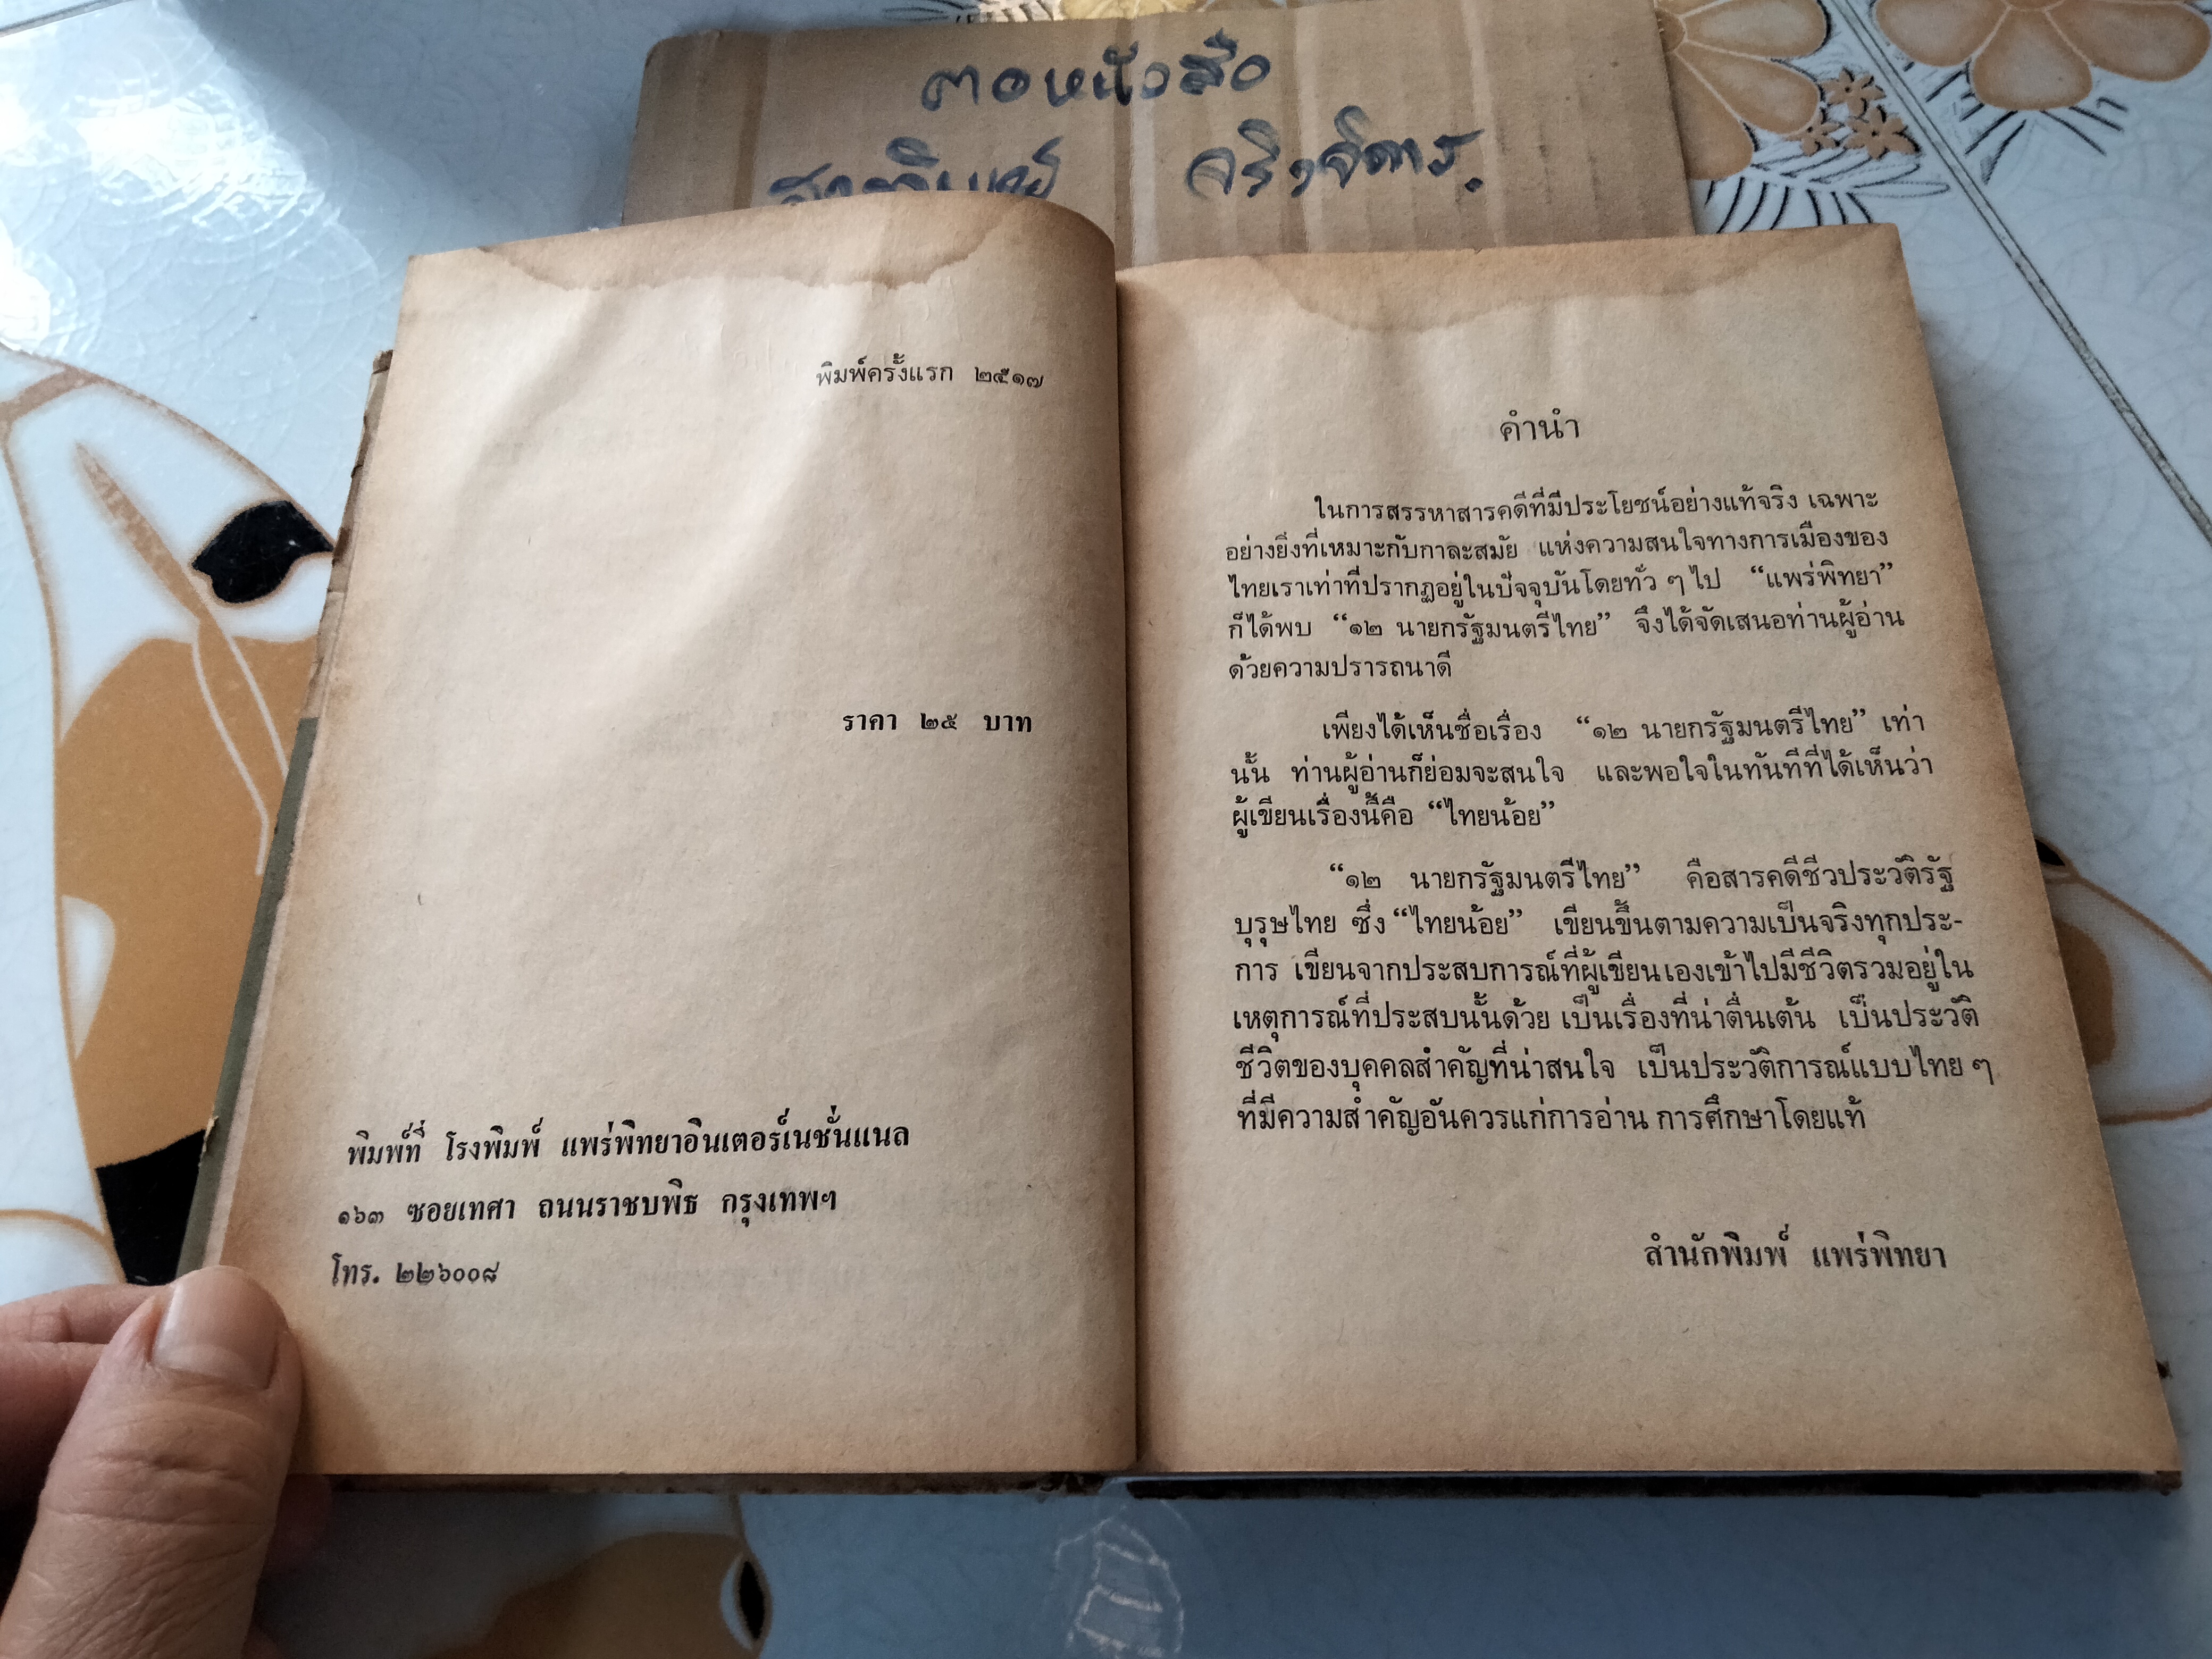 ตอหนังสือ
จริงจิตร.
พิมพ์ครั้งแรก ๒๕๑๗
ราคา ๒๕ บาท
พิมพ์ที่ โรงพิมพ์ แพร่พิทยาอินเตอร์เนชั่นแนล
๑๖๓ ซอยเทศา ถนนราชบพิธ กรุงเทพฯ
โทร. ๒๒๖๐๐๘
คำนำ
ในการสรรหาสารคดีที่มีประโยชน์อย่างแท้จริง เฉพาะ
อย่างยิ่งที่เหมาะกับกาละสมัย แห่งความสนใจทางการเมืองของ
ไทยเราเท่าที่ปรากฏอยู่ในปัจจุบันโดยทั่ว ๆ ไป “แพร่พิทยา”
ก็ได้พบ “๑๒ นายกรัฐมนตรีไทย” จึงได้จัดเสนอท่านผู้อ่าน
ด้วยความปรารถนาดี
เพียงได้เห็นชื่อเรื่อง “๑๒ นายกรัฐมนตรีไทย” เท่า
นั้น ท่านผู้อ่านก็ย่อมจะสนใจ และพอใจในทันทีที่ได้เห็นว่า
ผู้เขียนเรื่องนี้คือ “ไทยน้อย”
“๑๒ นายกรัฐมนตรีไทย” คือสารคดีชีวประวัติรัฐ
บุรุษไทย ซึ่ง “ไทยน้อย” เขียนขึ้นตามความเป็นจริงทุกประ-
การ เขียนจากประสบการณ์ที่ผู้เขียนเองเข้าไปมีชีวิตรวมอยู่ใน
เหตุการณ์ที่ประสบนั้นด้วย เป็นเรื่องที่น่าตื่นเต้น เป็นประวัติ
ชีวิตของบุคคลสำคัญที่น่าสนใจ เป็นประวัติการณ์แบบไทย ๆ
ที่มีความสำคัญอันควรแก่การอ่าน การศึกษาโดยแท้
สำนักพิมพ์ แพร่พิทยา